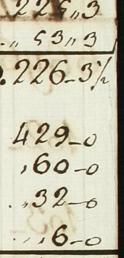 225,,3
,, 53,,3
226-3½
429-0
,60-0
,,32-0
,,,6-0